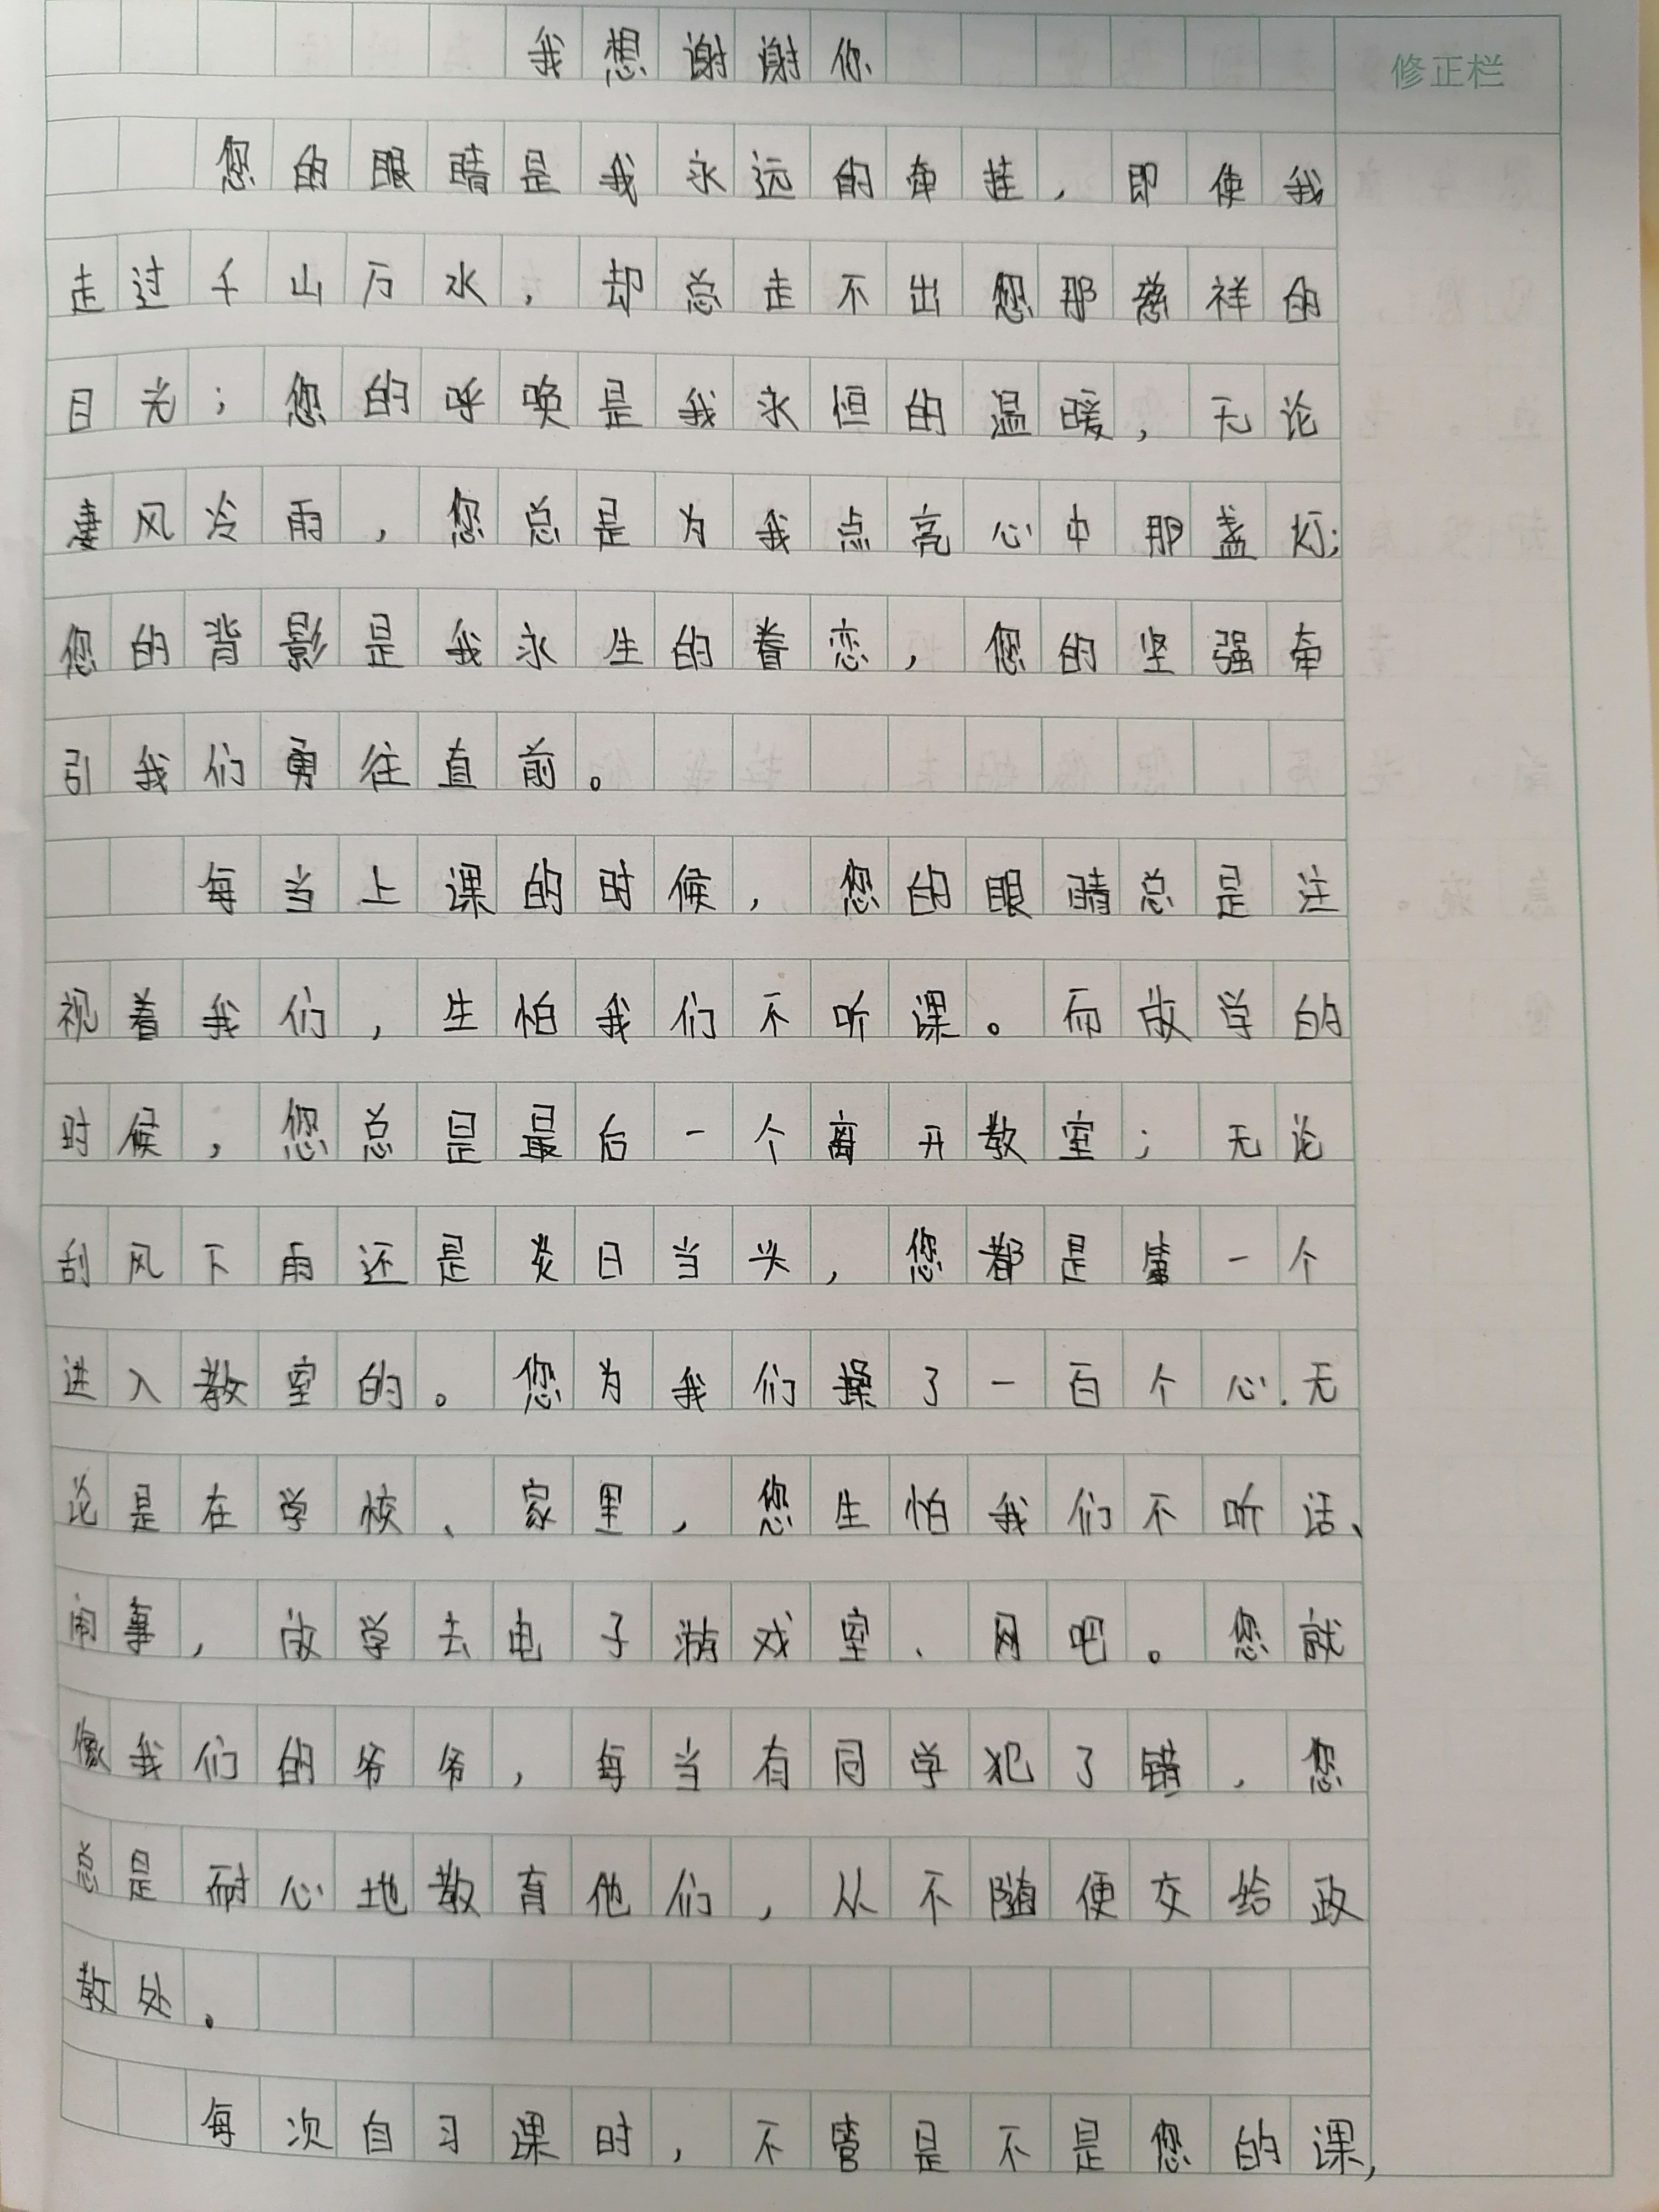 我想谢谢你
修正栏
您的眼睛是我永远的牵挂，即使我
走过千山万水，却总走不出您那慈祥的
目光；您的呼唤是我永恒的温暖，无论
凄风冷雨，您总是为我点亮心中那盏灯；
您的背影是我永生的眷恋，您的坚强牵
引我们勇往直前。
每当上课的时候，您的眼睛总是注
视着我们，生怕我们不听课。而放学的
时候，您总是最后一个离开教室；无论
刮风下雨还是炎日当头，您都是第一个
进入教室的。您为我们操了一百个心.无
论是在学校、家里，您生怕我们不听话、
闹事，放学去电子游戏室、网吧。您就
像我们的爷爷，每当有同学犯了错，您
总是耐心地教育他们，从不随便交给政
教处。
每次自习课时，不管是不是您的课，